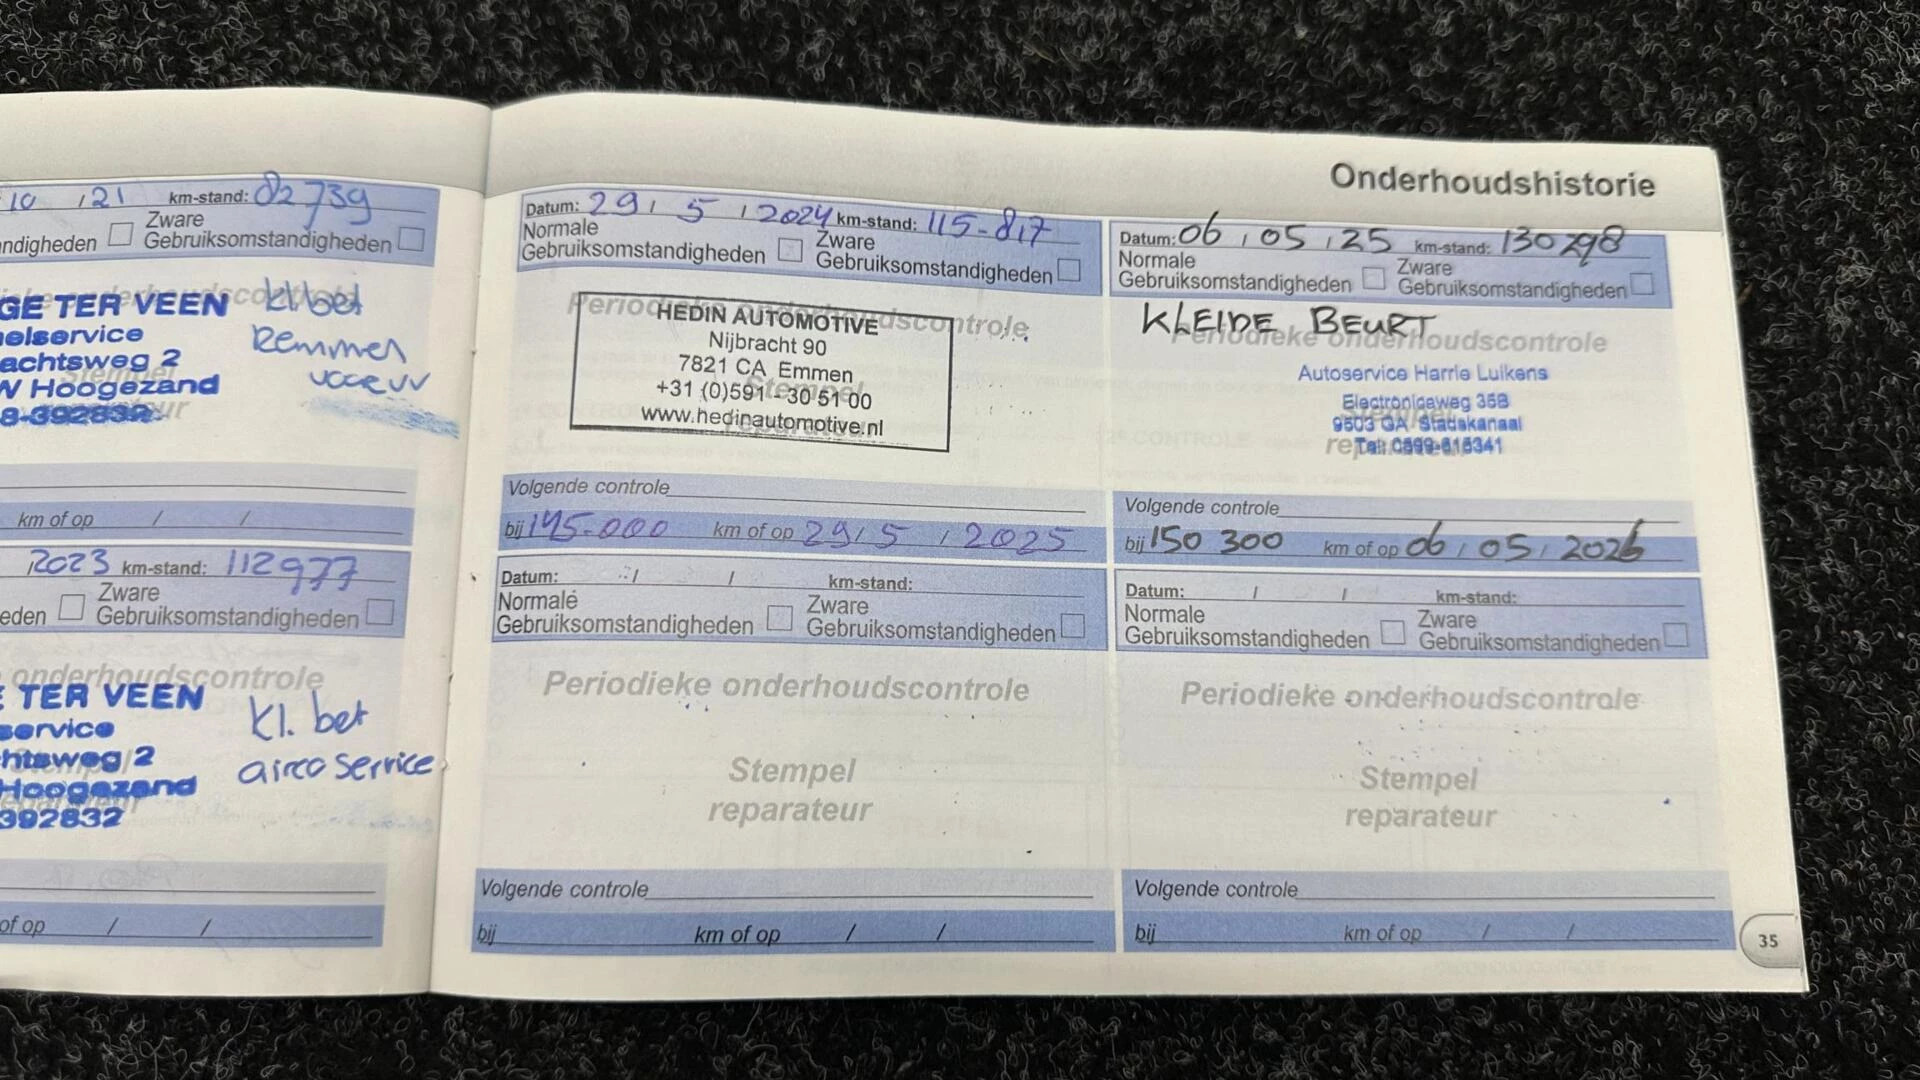 Onderhoudshistorie
10 / 21 km-stand: 82739
ndigheden Zware
Gebruiksomstandigheden
GE TER VEEN kl. bet
elservice Remmen
achtsweg 2
W Hoogezand
8-392832
km of op / /
2023 km-stand: 112977
eden Zware
Gebruiksomstandigheden
onderhoudscontrole
TER VEEN
service kl. bet
htsweg 2 airco service
Hoogezand
392832
of op / /
Datum: 29 / 5 / 2024 km-stand: 115-817
Normale
Gebruiksomstandigheden Zware
Gebruiksomstandigheden
Periodieke onderhoudscontrole
HEDIN AUTOMOTIVE
Nijbracht 90
7821 CA Emmen
+31 (0)591 - 30 51 00
www.hedinautomotive.nl
Stempel
reparateur
Volgende controle
bij 145-000 km of op 29 / 5 / 2025
Datum: / / km-stand:
Normale
Gebruiksomstandigheden Zware
Gebruiksomstandigheden
Periodieke onderhoudscontrole
Stempel
reparateur
Volgende controle
bij km of op / /
Datum: 06 / 05 / 25 km-stand: 130298
Normale
Gebruiksomstandigheden Zware
Gebruiksomstandigheden
KLEINE BEURT
Periodieke onderhoudscontrole
Autoservice Harrie Luikens
Electronicaweg 35B
9503 GA Stadskanaal
Tel: 0599-615341
Volgende controle
bij 150 300 km of op 06 / 05 / 2026
Datum: / / km-stand:
Normale
Gebruiksomstandigheden Zware
Gebruiksomstandigheden
Periodieke onderhoudscontrole
Stempel
reparateur
Volgende controle
bij km of op / /
35